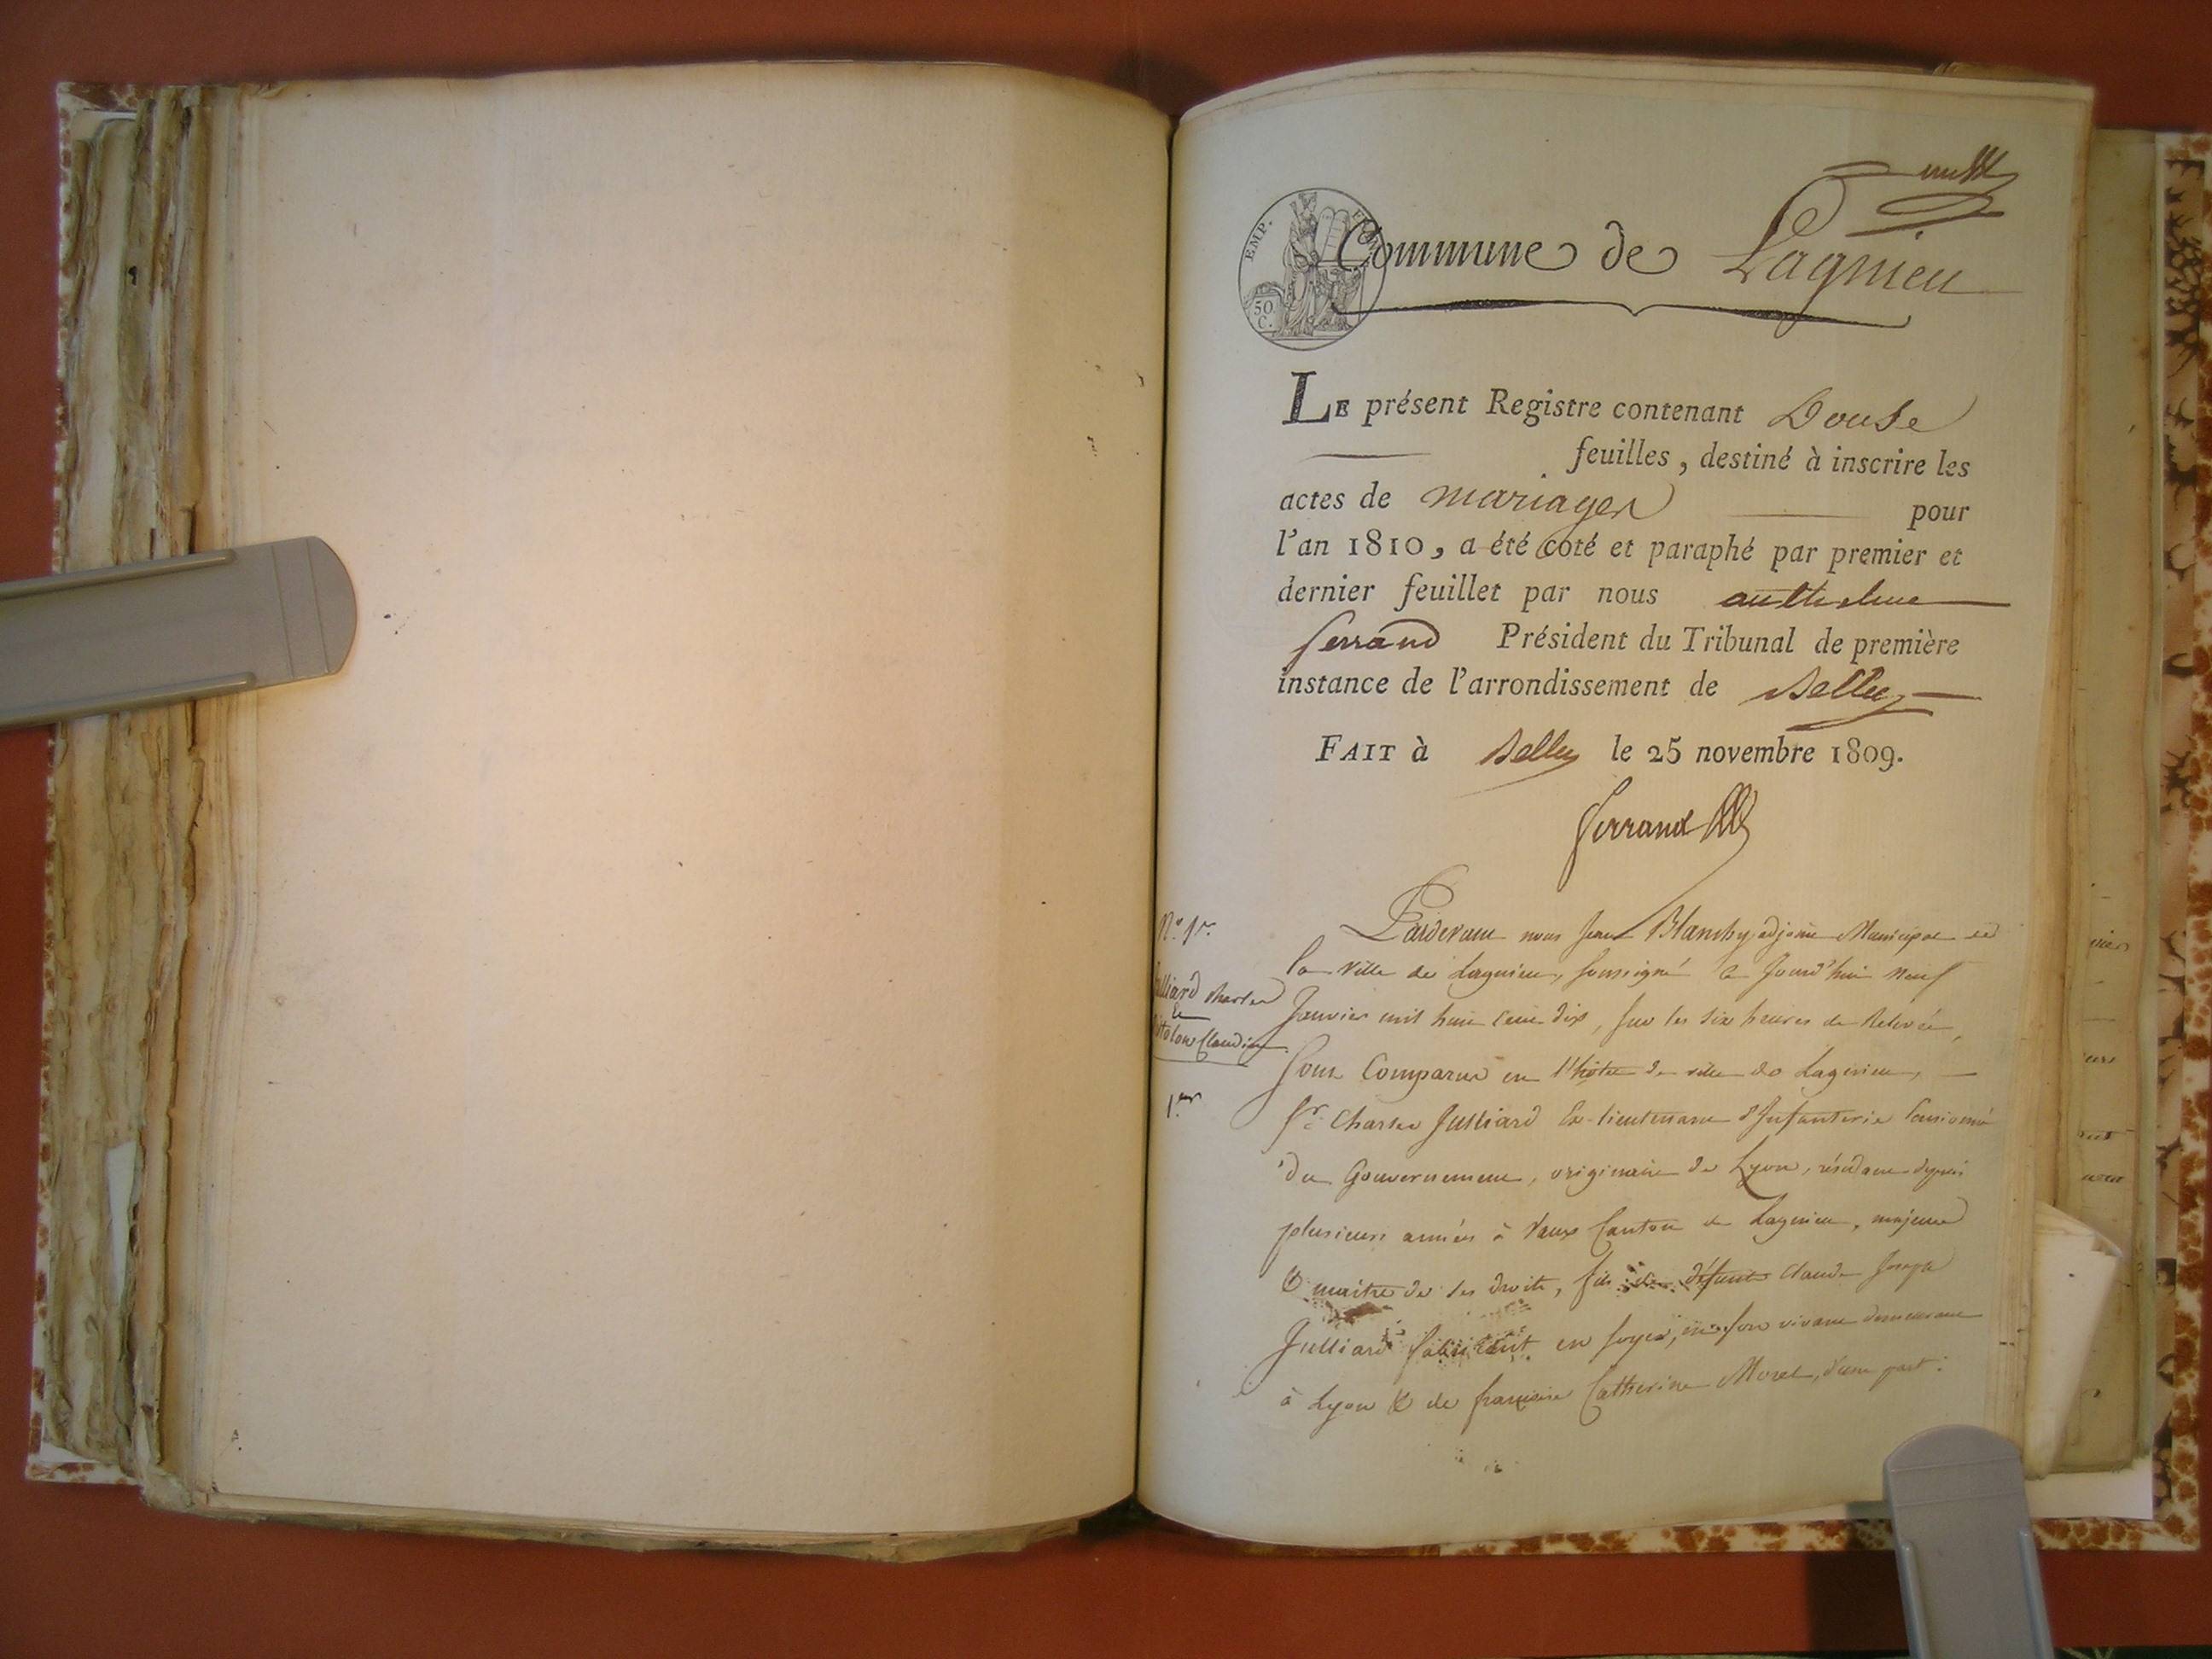 un
EMP. FR
50 C.
Commune de Lagnieu
LE présent Registre contenant Douse
feuilles, destiné à inscrire les
actes de mariages pour
l'an 1810, a été coté et paraphé par premier et
dernier feuillet par nous anthelme
ferrand Président du Tribunal de première
instance de l'arrondissement de Belley
FAIT à Belley le 25 novembre 1809.
ferrand
Pardevant nous Jean Blanchy adjoint Municipal de
la Ville de Lagnieu, soussigné ce Jourd'hui Neuf
Janvier mil huit cent dix, sur les six heures de Relevée,
Sont Comparus en l'hôtel de ville de Lagnieu,
Sr. Charles Julliard Ex-lieutenant d'Infanterie Pensionné
du Gouvernement, originaire de Lyon, résidant depuis
plusieurs années à Vaux Canton de Lagnieu, majeur
& maître de ses droits, fils de défunt Claude Joseph
Julliard fabricant en soyes, en son vivant demeurant
à Lyon & de françoise Catherine Morel, d'une part.
N.o 1er.
lliard charles
&
itolon Claudine
1.er